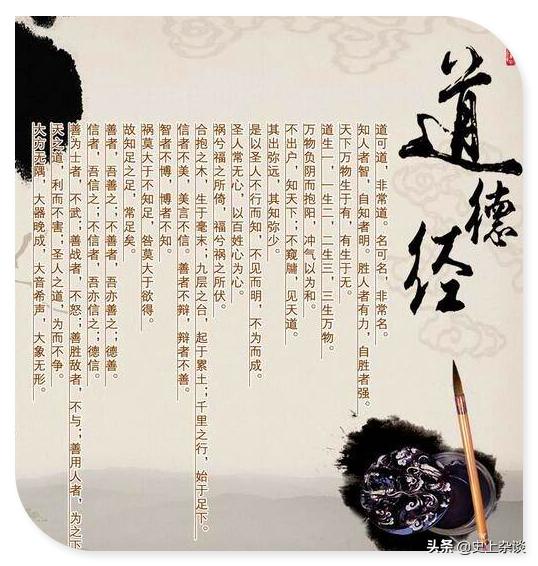 道德经
道可道，非常道。名可名，非常名。
知人者智，自知者明。胜人者有力，自胜者强。
天下万物生于有，有生于无。
道生一，一生二，二生三，三生万物。
万物负阴而抱阳，冲气以为和。
不出户，知天下；不窥牖，见天道。
其出弥远，其知弥少。
是以圣人不行而知，不见而明，不为而成。
圣人常无心，以百姓心为心。
祸兮福之所倚 福兮祸之所伏。
合抱之木，生于毫末；九层之台，起于累土；千里之行，始于足下。
信者不美，美言不信。善者不辩，辩者不善。
智者不博，博者不知。
祸莫大于不知足，咎莫大于欲得。
故知足之足，常足矣。
善者，吾善之；不善者，吾亦善之；德善。
信者，吾信之；不信者，吾亦信之；德信。
善为士者，不武；善战者，不怒；善胜敌者，不与；善用人者，为之下
天之道，利而不害；圣人之道，为而不争。
大方无隅，大器晚成，大音希声，大象无形。
头条 @史上杂谈